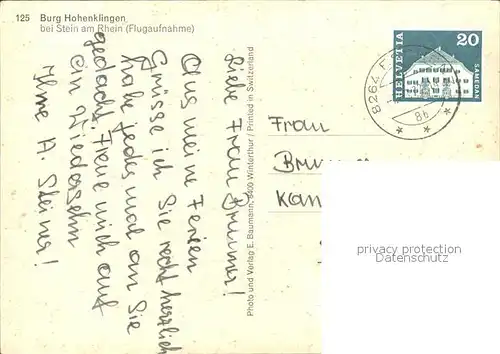 125 Burg Hohenklingen
bei Stein am Rhein (Flugaufnahme)
Liebe Frau Brunner!
Aus meine Ferien
Grüsse ich Sie recht herzlich
habe jedes mal an Sie
gedacht. Freue mich auf
ein Wiedersehn
Ihre H. Steiner!
Photo und Verlag E. Baumann, 8400 Winterthur / Printed in Switzerland
HELVETIA
20
SAMEDAN
8264
Frau
Kan
privacy protection
Datenschutz